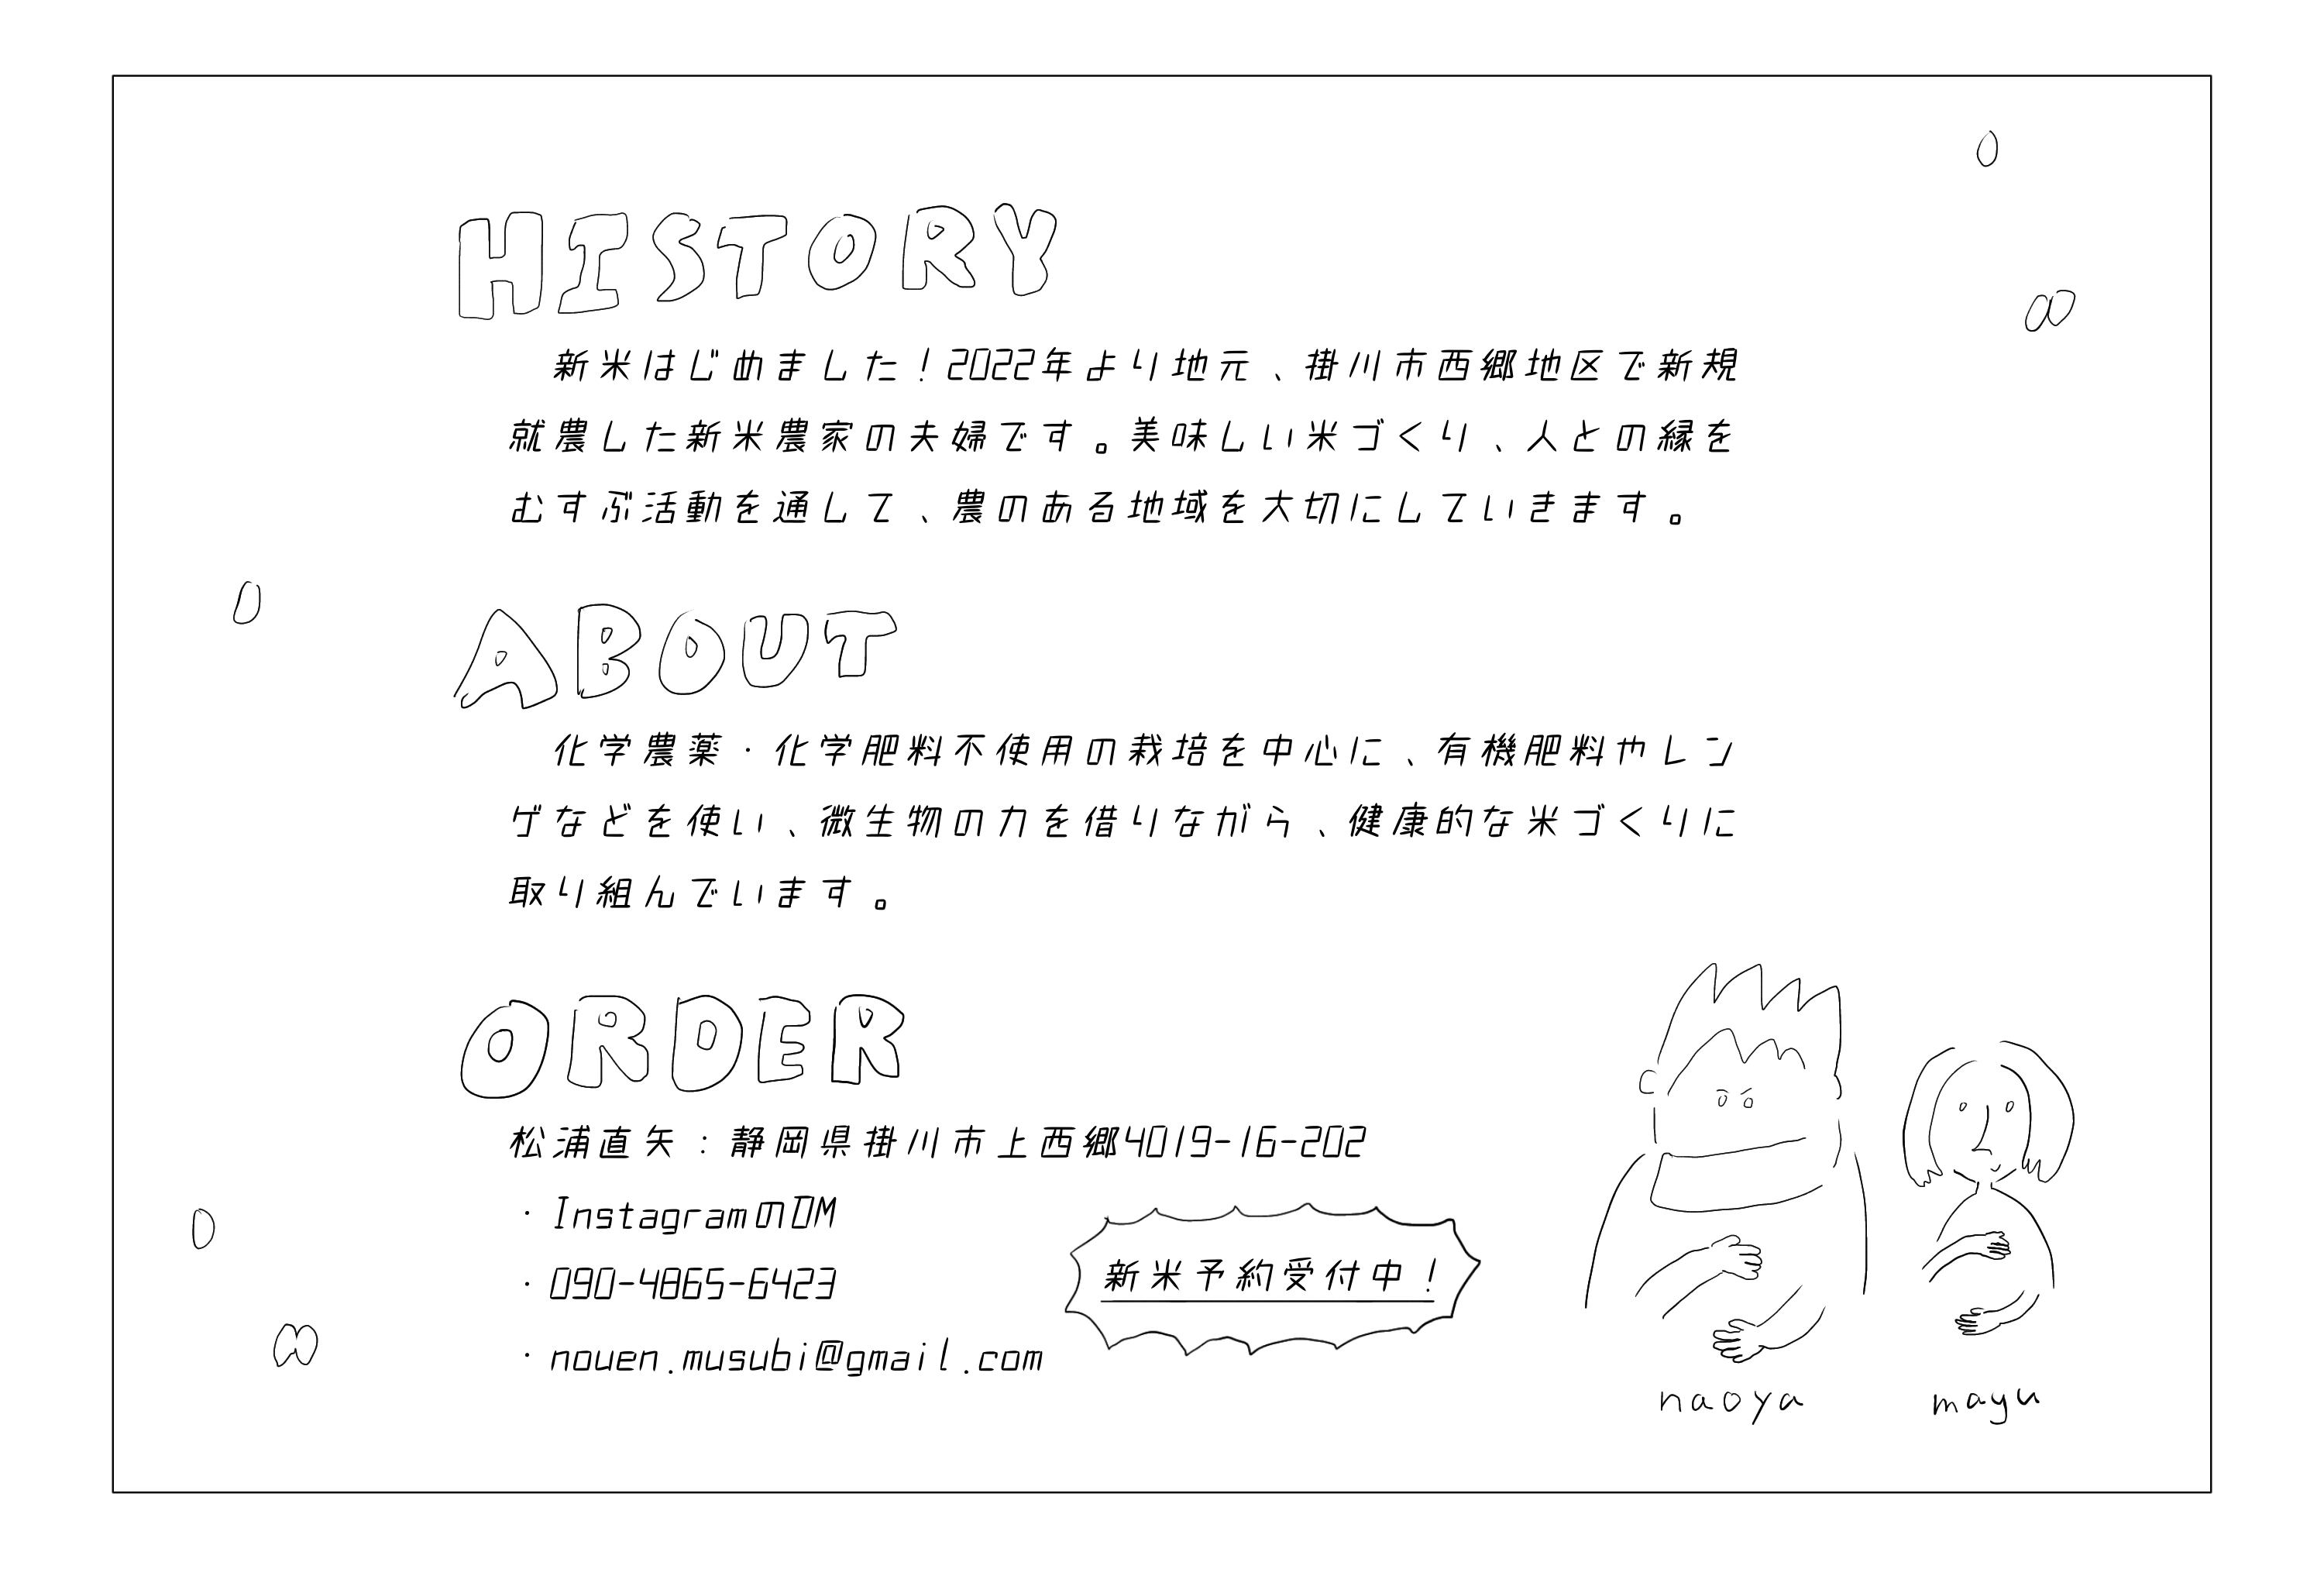 HISTORY
新米はじめました！2022年より地元、掛川市西郷地区で新規
就農した新米農家の夫婦です。美味しい米づくり、人との縁を
むすぶ活動を通して、農のある地域を大切にしていきます。
ABOUT
化学農薬・化学肥料不使用の栽培を中心に、有機肥料やレン
ゲなどを使い、微生物の力を借りながら、健康的な米づくりに
取り組んでいます。
ORDER
松浦直矢：静岡県掛川市上西郷4019-16-202
・InstagramのDM
・090-4865-6423
・nouen.musubi@gmail.com
新米予約受付中！
naoya
mayu